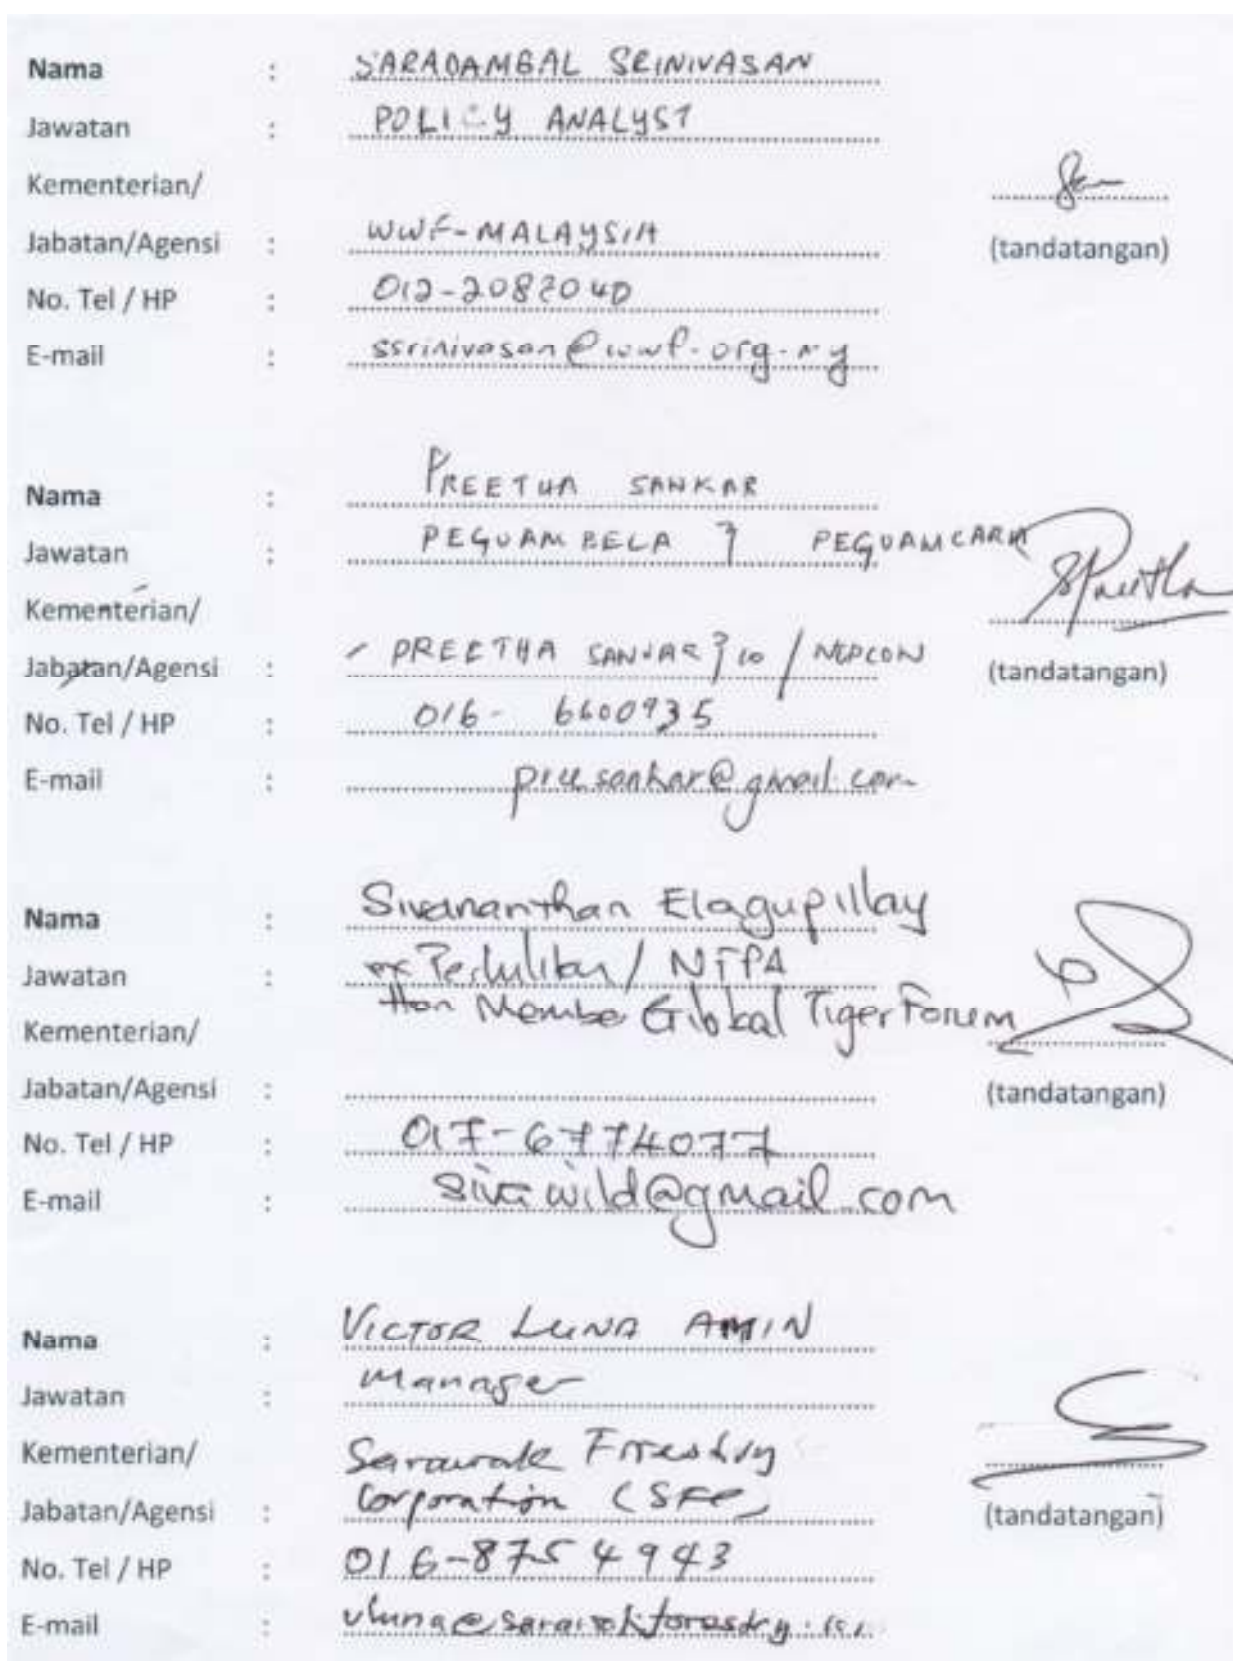 Nama : SARADAMBAL SRINIVASAN
Jawatan : POLICY ANALYST
Kementerian/
Jabatan/Agensi : WWF-MALAYSIA
(tandatangan)
No. Tel / HP : 012-2082040
E-mail : ssrinivasan@wwf.org.my
Nama : PREETHA SANKAR
Jawatan : PEGUAMBELA & PEGUAMCARA
Kementerian/
Jabatan/Agensi : PREETHA SANKAR & co / NEPCON
(tandatangan)
No. Tel / HP : 016- 6600935
E-mail : preesankar@gmail.com
Nama : Sivananthan Elagupillay
Jawatan : ex Perhilitan / NTPA
Hon Member Global Tiger Forum
Kementerian/
Jabatan/Agensi :
(tandatangan)
No. Tel / HP : 017-6774077
E-mail : sivawild@gmail.com
Nama : VICTOR LUNA AMIN
Jawatan : Manager
Kementerian/ Sarawak Forestry
Jabatan/Agensi : Corporation (SFC)
(tandatangan)
No. Tel / HP : 016-8754943
E-mail :